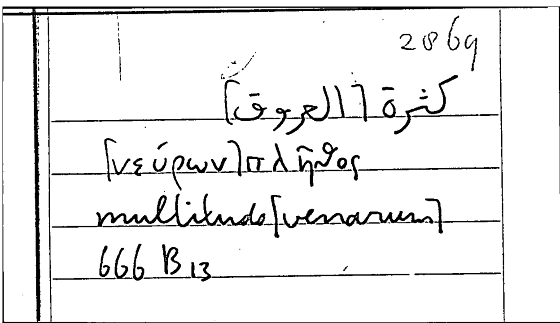 2869
كثرة [العروق]
[νεύρων] πλῆθος
multitudo [venarum]
666 B 13